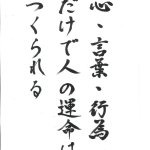 心・言葉・行為
だけで人の運命は
つくられる